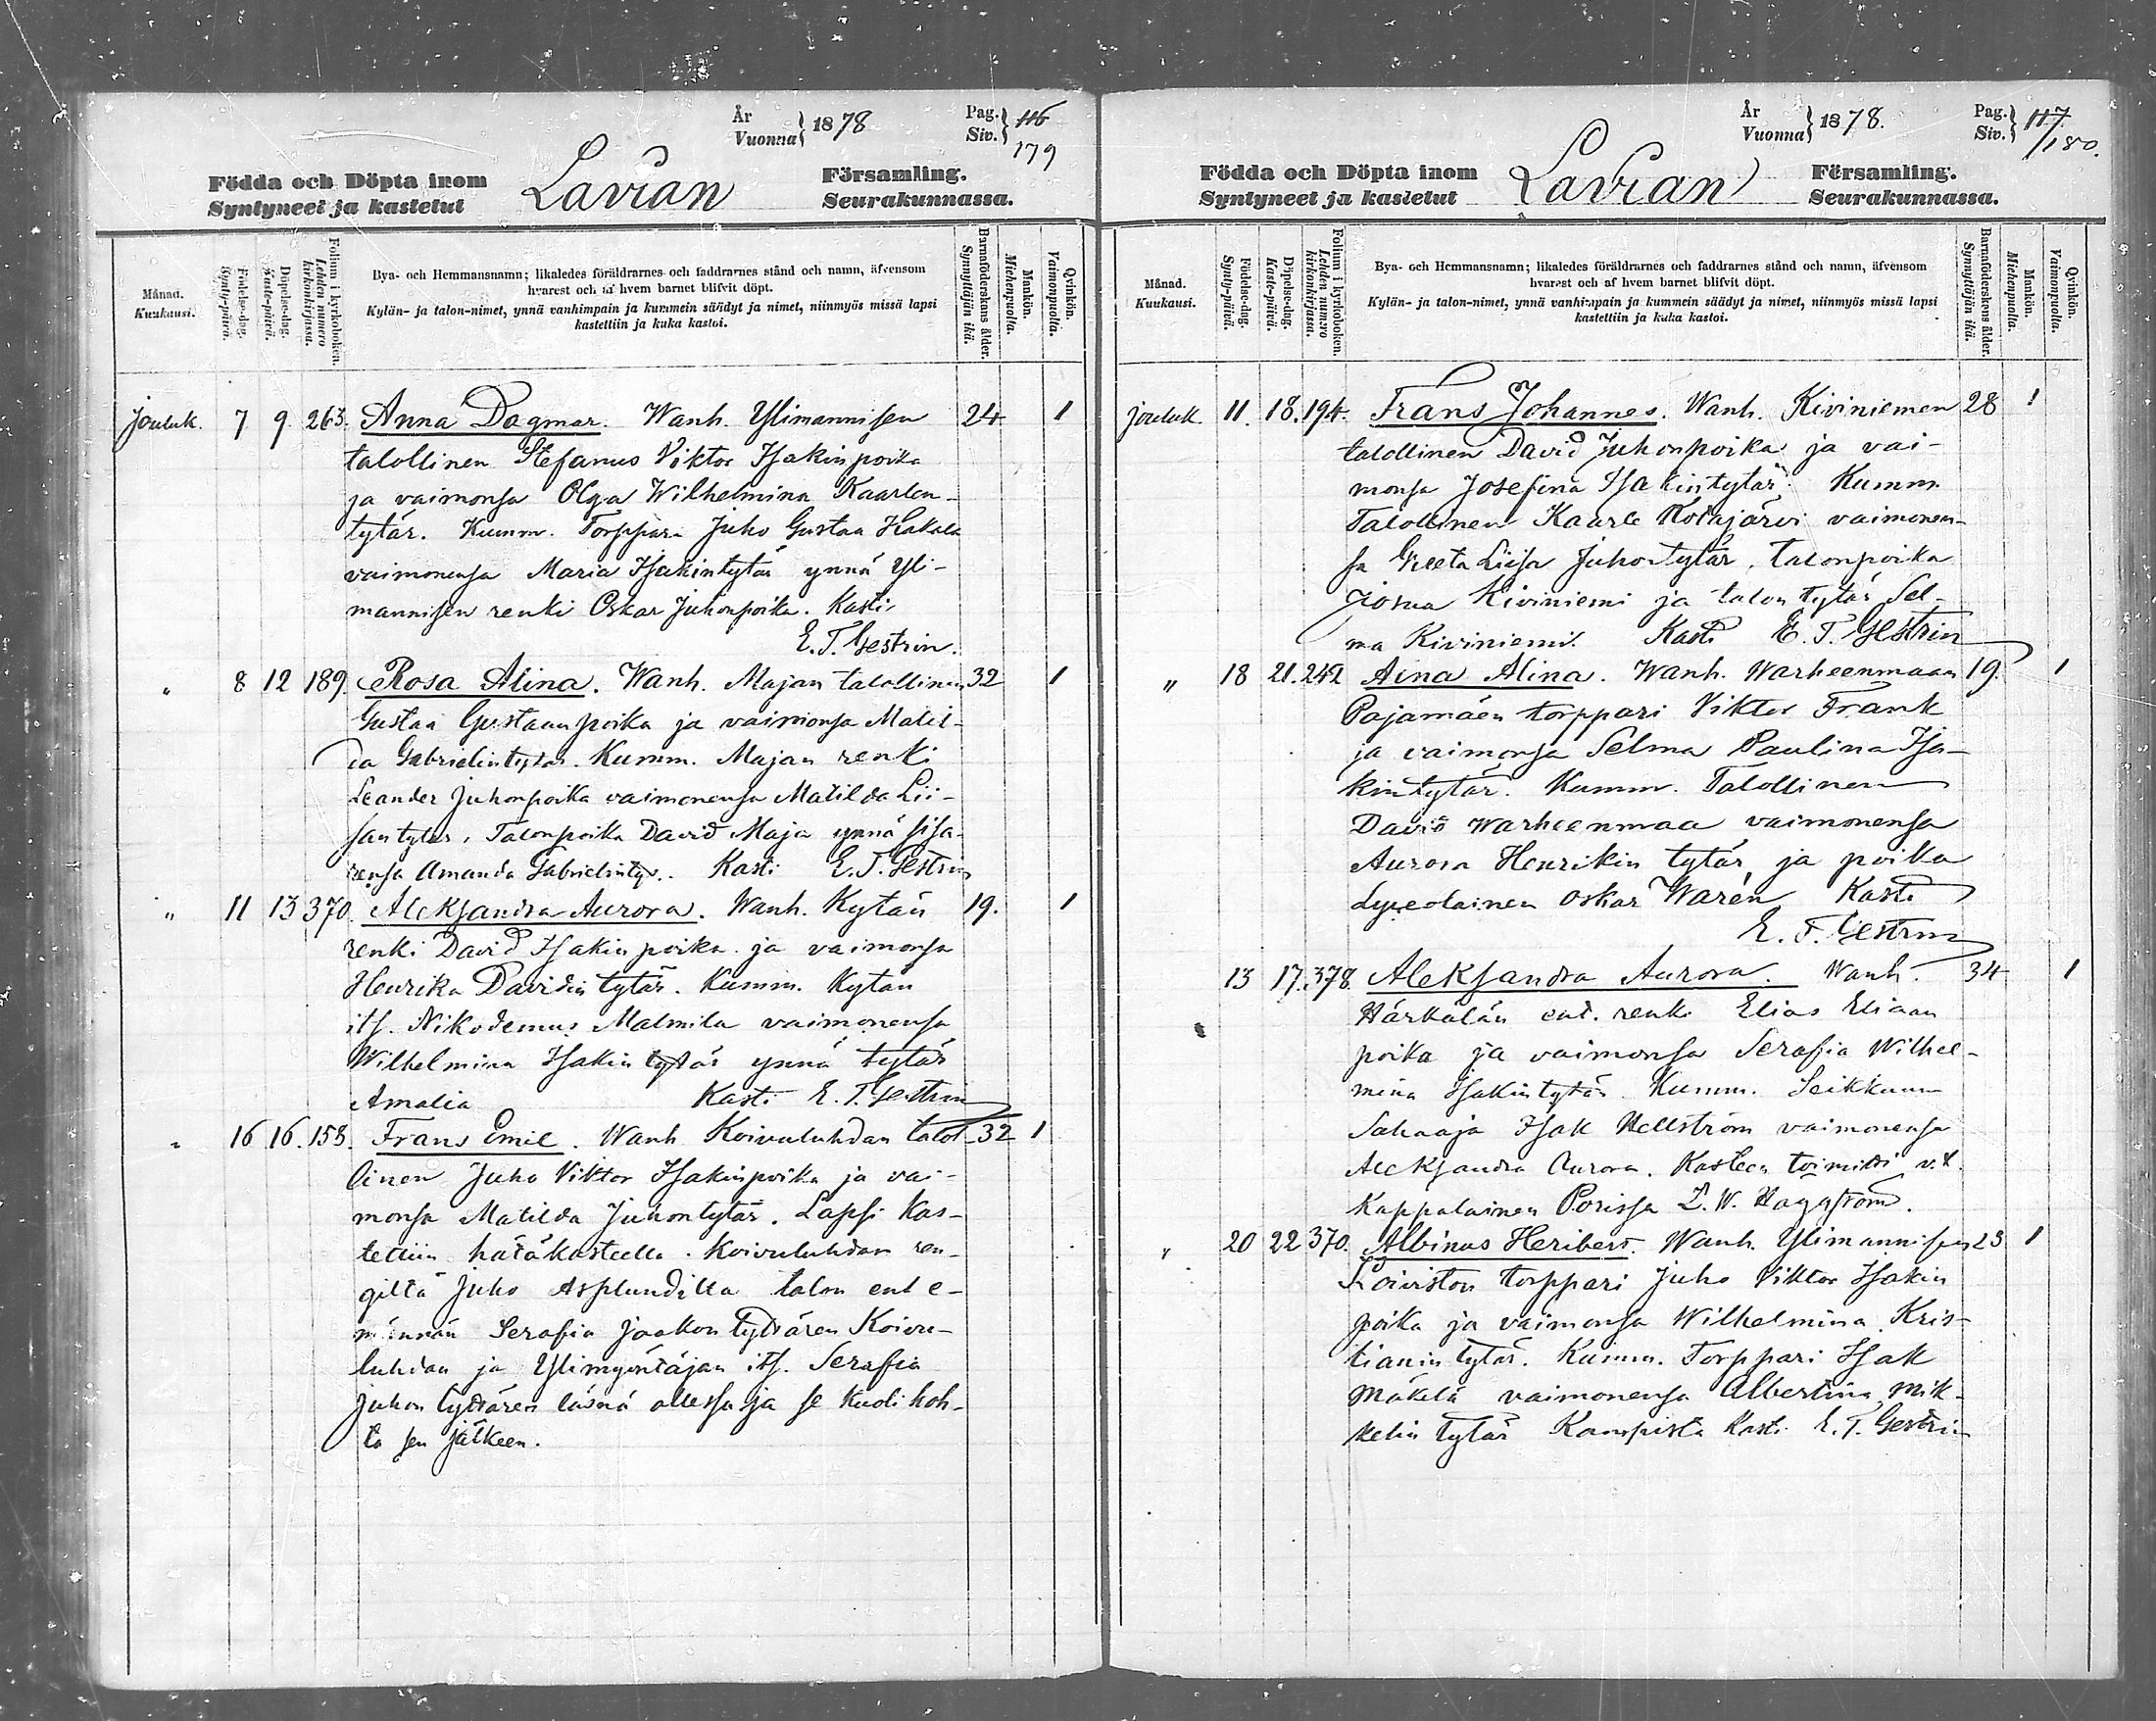 År
Vuonna } 1878
Pag.
Siv. } 116
179
Födda och Döpta inom
Syntyneet ja kastetut
Lavian
Församling.
Seurakunnassa.
Månad.
Kuukausi.
Födelse-dag.
Synty-päivä.
Döpelse-dag.
Kaste-päivä.
Folium i kyrkoboken.
Lehden numero kirkonkirjassa.
Bya- och Hemmansnamn; likaledes föräldrarnes och faddrarnes stånd och namn, äfvensom
hvarest och af hvem barnet blifvit döpt.
Kylän- ja talon-nimet, ynnä vanhimpain ja kummein säädyt ja nimet, niinmyös missä lapsi
kastettiin ja kuka kastoi.
Barnaföderskans ålder.
Synnyttäjän ikä.
Mankön.
Miehenpuolta.
Qvinkön.
Vaimonpuolta.
Jouluk. 7 9. 263. Anna Dagmar. Wanh. Ylimannisen 24 1
talollinen Stefanus Viktor Isakinpoika
ja vaimonsa Olga Wilhelmina Kaarlen-
tytär. Kumm. Torppari Juho Gustaa Hakala
vaimonensa Maria Isakintytär ynnä Yli-
mannisen renki Oskar Juhonpoika. Kasti
E. T. Gestrin.
" 8 12 189. Rosa Alina. Wanh. Majan talollinen 32 1
Gustaa Gustaanpoika ja vaimonsa Matil-
da Gabrielintytär. Kumm. Majan renki
Leander Juhonpoika vaimonensa Matilda Lii-
santytär, Talonpoika David Maja ynnä sisa-
rensa Amanda Gabrielinty. Kasti E. T. Gestrin
" 11 13 370. Aleksandra Aurora. Wanh. Kytän 19. 1
renki David Isakinpoika ja vaimonsa
Henrika Davidintytär. Kumm. Kytän
its. Nikodemus Malmila vaimonensa
Wilhelmina Isakintytär ynnä tytär
Amalia Kasti E. T. Gestrin
" 16 16. 158. Frans Emil. Wanh Koivuluhdan talol- 32 1
linen Juho Viktor Isakinpoika ja vai-
monsa Matilda Juhontytär. Lapsi kas-
tettiin hätäkasteella. Koivuluhdan ren-
giltä Juho Asplundilta talon ent e-
männän Serafia Jaakontyttären Koivu-
luhdan ja Ylimyöntäjän its. Serafia
Juhontyttären läsnä ollessa ja se kuoli koh-
ta sen jälkeen.
År
Vuonna } 1878.
Pag.
Siv. } 117
180.
Födda och Döpta inom
Syntyneet ja kastetut
Lavian
Församling.
Seurakunnassa.
Månad.
Kuukausi.
Födelse-dag.
Synty-päivä.
Döpelse-dag.
Kaste-päivä.
Folium i kyrkoboken.
Lehden numero kirkonkirjassa.
Bya- och Hemmansnamn; likaledes föräldrarnes och faddrarnes stånd och namn, äfvensom
hvarest och af hvem barnet blifvit döpt.
Kylän- ja talon-nimet, ynnä vanhimpain ja kummein säädyt ja nimet, niinmyös missä lapsi
kastettiin ja kuka kastoi.
Barnaföderskans ålder.
Synnyttäjän ikä.
Mankön.
Miehenpuolta.
Qvinkön.
Vaimonpuolta.
Jouluk. 11. 18. 194. Frans Johannes. Wanh. Kiviniemen 28 1
talollinen David Juhonpoika ja vai-
monsa Josefina Isakintytär. Kumm.
Talollinen Kaarle Kotajärvi vaimonen-
sa Greeta Liisa Juhontytär, talonpoika
Josua Kiviniemi ja talon tytär Sel-
ma Kiviniemi. Kasti E. T. Gestrin
" 18 21. 242 Aina Alina. Wanh. Warheenmaan 19. 1
Pajamäen torppari Viktor Frank
ja vaimonsa Selma Paulina Isa-
kintytär. Kumm. Talollinen
David Warheenmaa vaimonensa
Aurora Henrikin tytär, ja poika
Lyseolainen Oskar Warén Kasti
E. T. Gestrin
13 17. 378. Aleksandra Aurora. Wanh. 34 1
Härkälän ent. renki Elias Eliaan
poika ja vaimonsa Serafia Wilhel-
mina Isakintytär. Kumm. Seikkuun
Sahaaja Isak Hellström vaimonensa
Aleksandra Aurora. Kasteen toimitti v.t.
Kappalainen Porissa L. W. Häggström.
" 20 22 370. Albinus Heribert. Wanh. Ylimannisen 23 1
Koiviston torppari Juho Viktor Isakin
poika ja vaimonsa Wilhelmina Kris-
tianin tytär. Kumm. Torppari Isak
Mäkelä vaimonensa Albertina Mik-
kelin tytär Kasti E. T. Gestrin